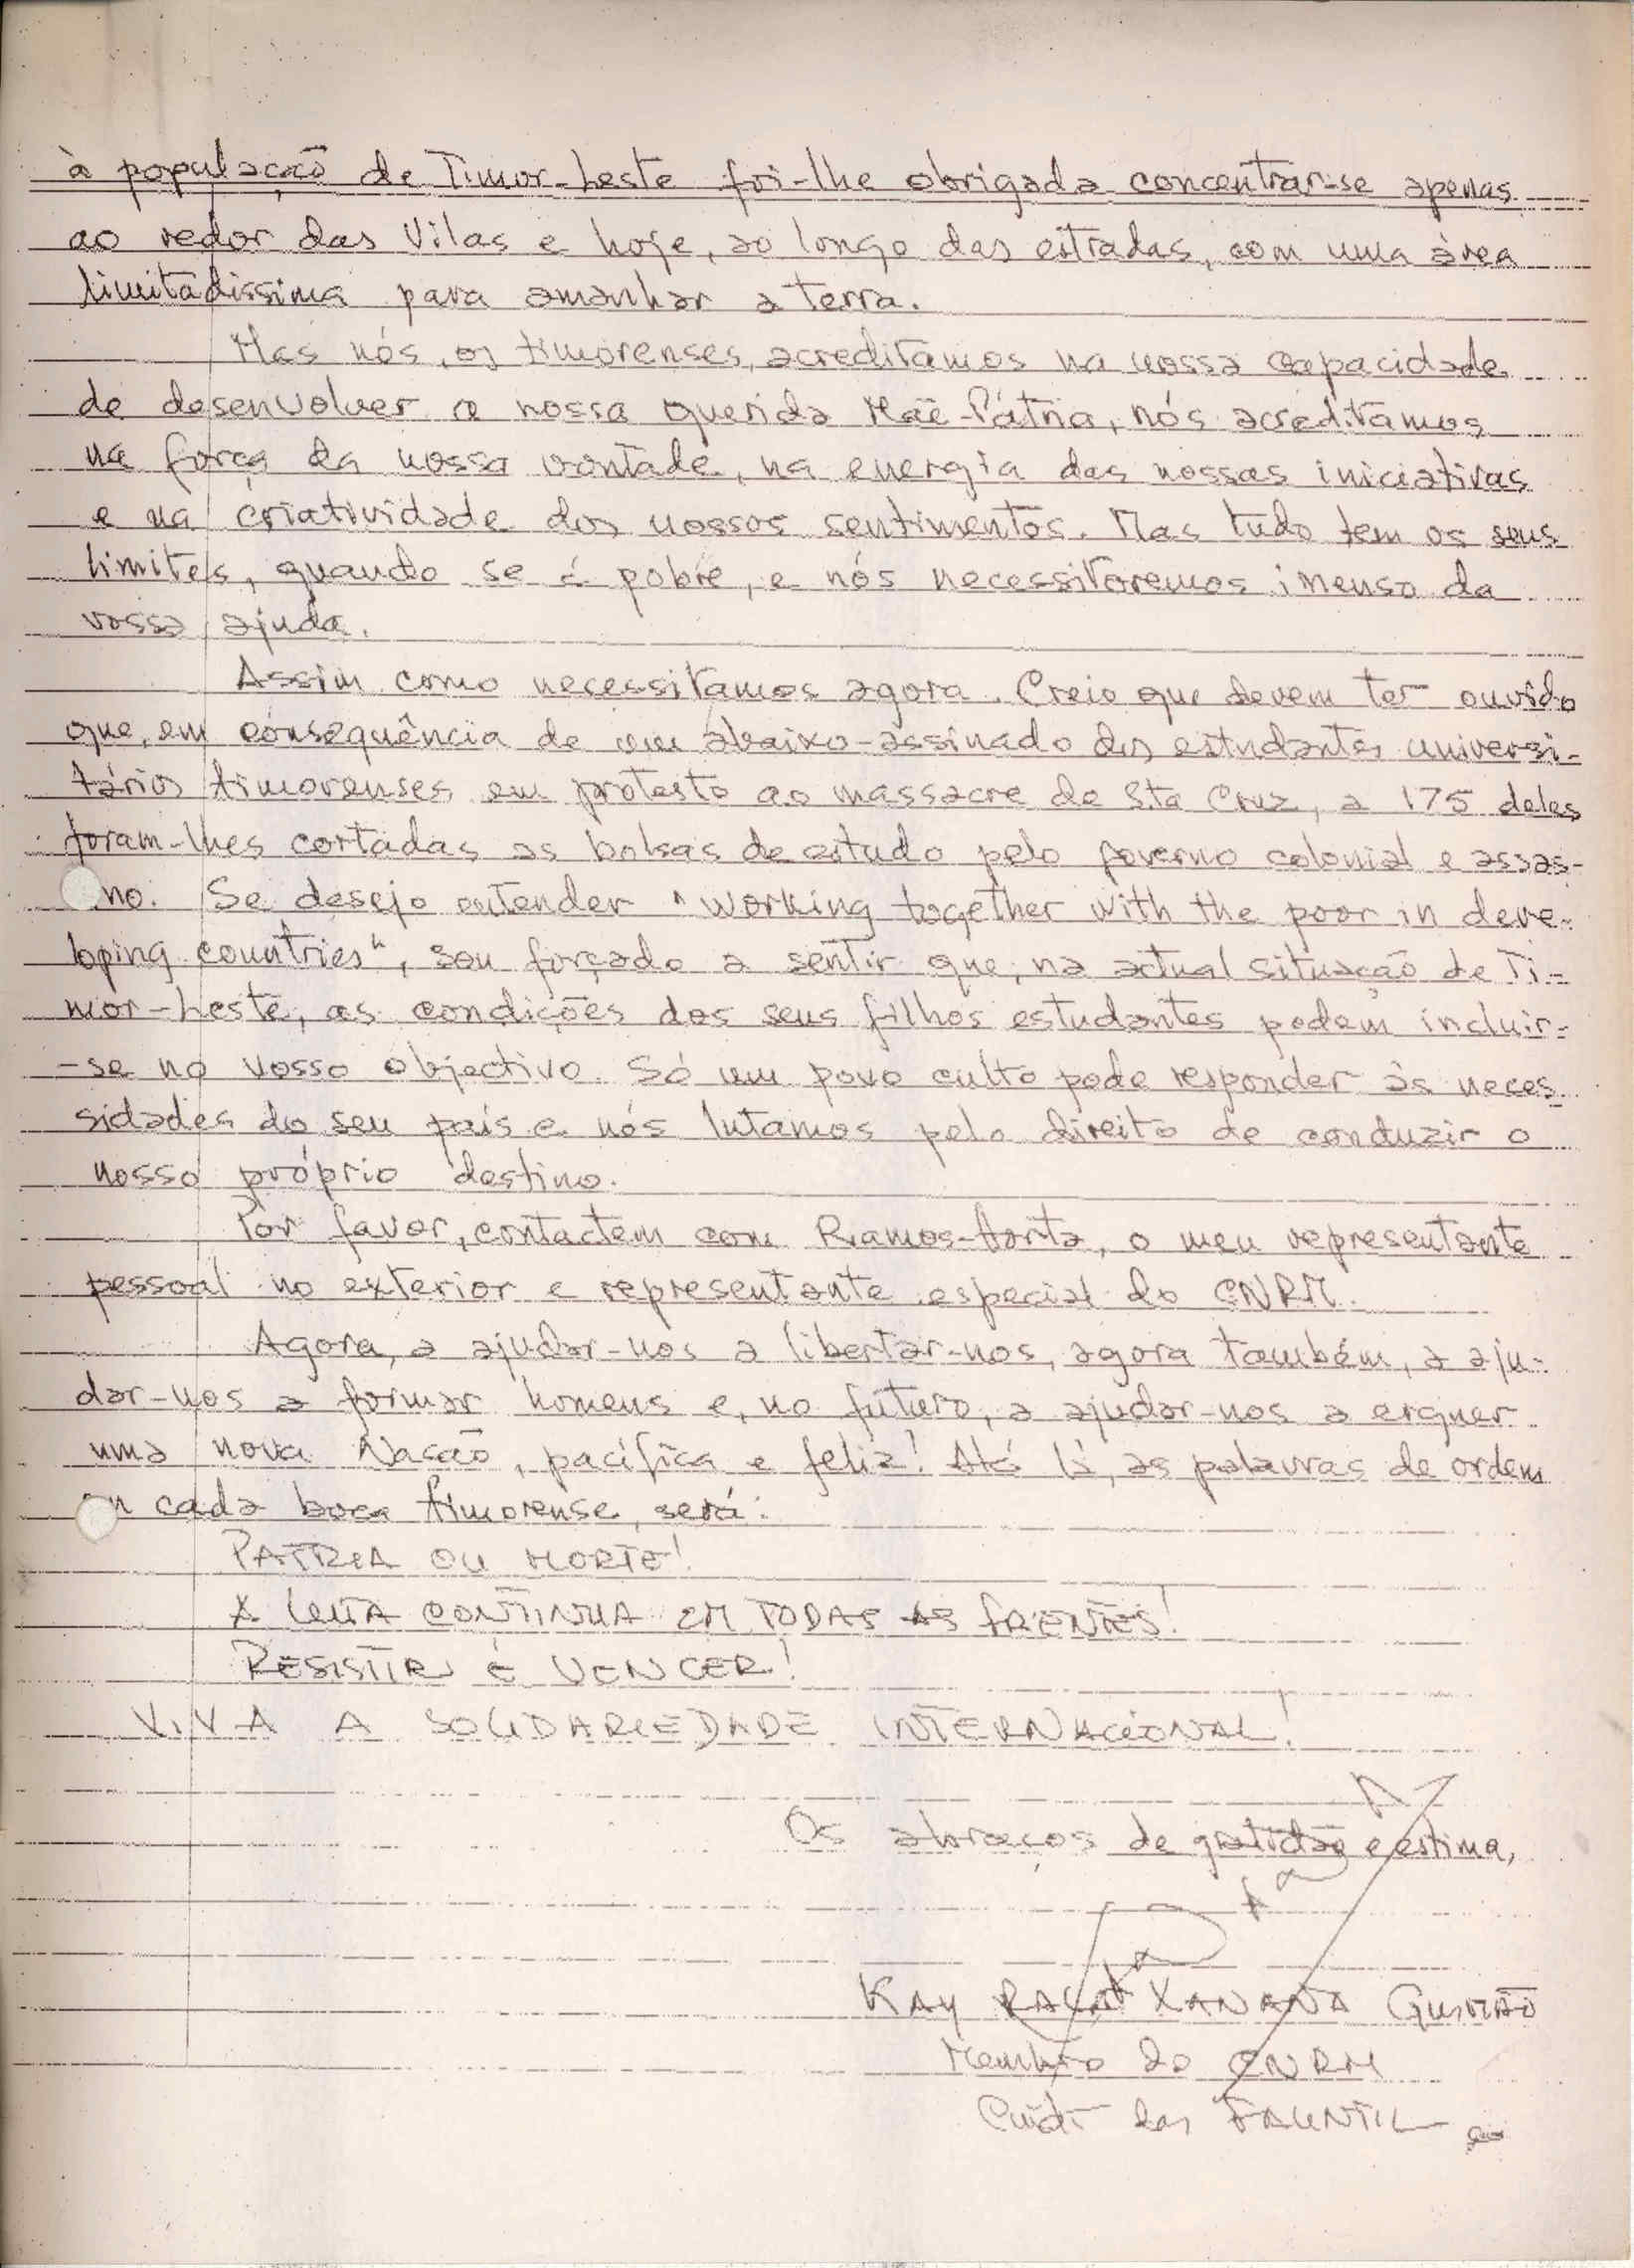 à população de Timor-Leste foi-lhe obrigada concentrar-se apenas
ao redor das Vilas e hoje, ao longo das estradas, com uma área
limitadissima para amanhar a terra.
Mas nós, os timorenses, acreditamos na nossa capacidade
de desenvolver a nossa querida Mãe-Pátria, nós acreditamos
na força da nossa vontade, na energia das nossas iniciativas
e na criatividade dos nossos sentimentos. Mas tudo tem os seus
limites, quando se é pobre, e nós necessitaremos imenso da
vossa ajuda.
Assim como necessitamos agora. Creio que devem ter ouvido
que, em consequência de um abaixo-assinado dos estudantes universi-
tários timorenses em protesto ao massacre de Sta Cruz, a 175 deles
foram-lhes cortadas as bolsas de estudo pelo governo colonial e assas-
no. Se desejo entender "working together with the poor in deve-
loping countries", sou forçado a sentir que, na actual situação de Ti-
mor-Leste, as condições dos seus filhos estudantes podem incluir-
-se no vosso objectivo. Só um povo culto pode responder às neces-
sidades do seu país e nós lutamos pelo direito de conduzir o
nosso próprio destino.
Por favor, contactem com Ramos-Horta, o meu representante
pessoal no exterior e representante especial do CNRM.
Agora, a ajudar-nos a libertar-nos, agora também, a aju-
dar-nos a formar homens e, no futuro, a ajudar-nos a erguer
uma nova Nação, pacífica e feliz! Até lá, as palavras de ordem
em cada boca timorense, será:
PATRIA OU MORTE!
A LUTA CONTINUA EM TODAS AS FRENTES!
RESISTIR É VENCER!
VIVA A SOLIDARIEDADE INTERNACIONAL!
Os abraços de gratidão e estima,
KAY RALA XANANA GUSMÃO
Membro do CNRM
Cmdt das FALINTIL